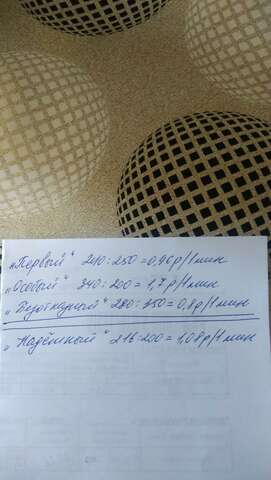 „Первый“ 240:250=0,96р/1мин
„Особый“ 340:200=1,7р/1мин
„Безотказный“ 280:350=0,8р/1мин
„Надёжный“ 216:200=1,08р/1мин